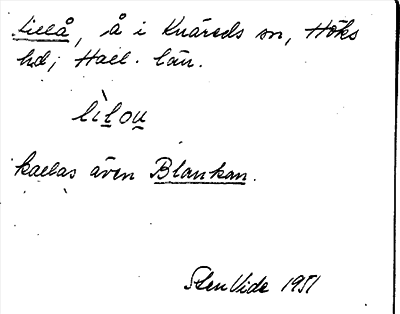 Lillå, å i Knäreds sn, Höks
hd, Hall. län.
lìlou
kallas även Blankan.
Sten Vide 1951